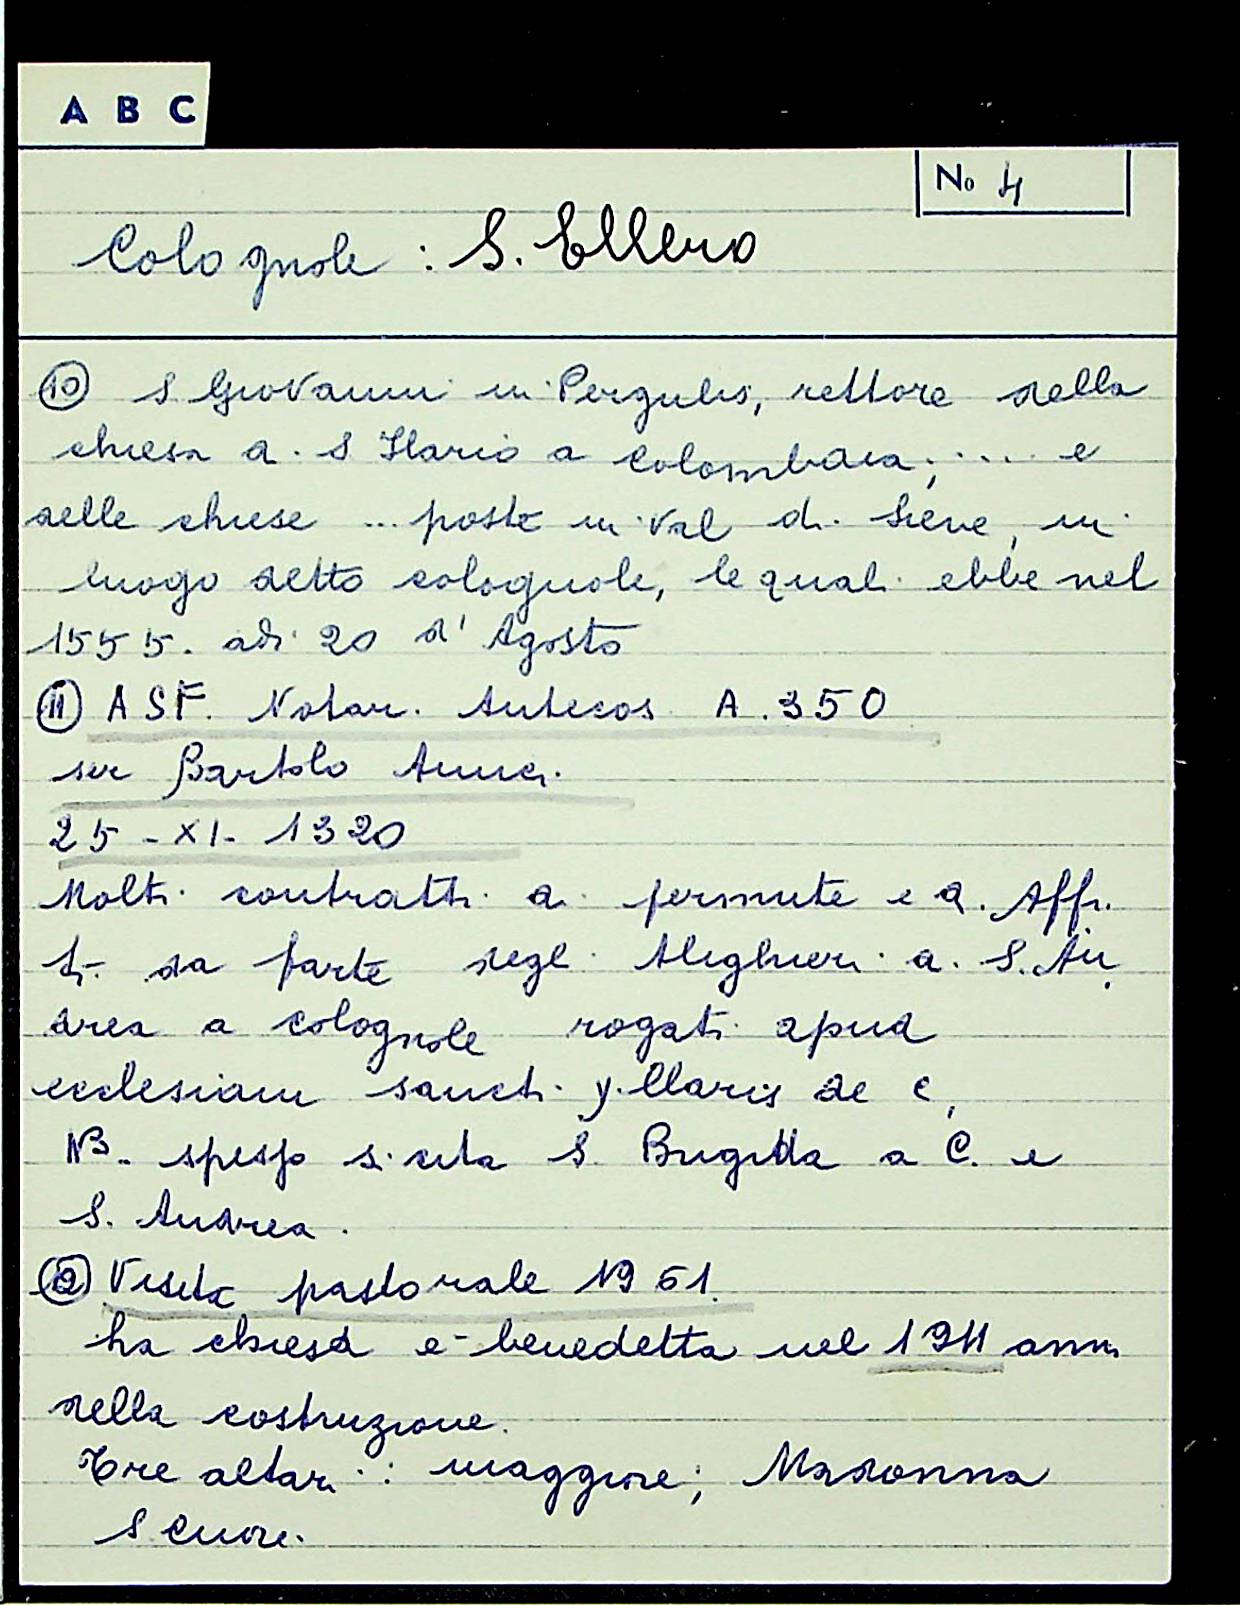 A B C
No 4
Colognole : S. Ellero
10 S Giovanni in Pergulis, rettore della
chiesa di S Ilario a Colombaia; .... e
delle chiese ... poste in Val di Sieve, in
luogo detto Colognole, le quali ebbe nel
1555. adi 20 d'Agosto
11 ASF. Notar. Antecos A. 350
ser Bartolo Amici.
25 - XI - 1320
Molti contratti di permute e di Affi.
ti da parte degli Alighieri di S. An
drea a Colognole rogati apud
ecclesiam sancti yllaris de C,
NB. spesso si cita S. Brigitta a C. e
S. Andrea.
Visita pastorale 1961.
La chiesa è benedetta nel 1911 anno
della costruzione.
Tre altari : maggiore; Madonna
S. Cuore.